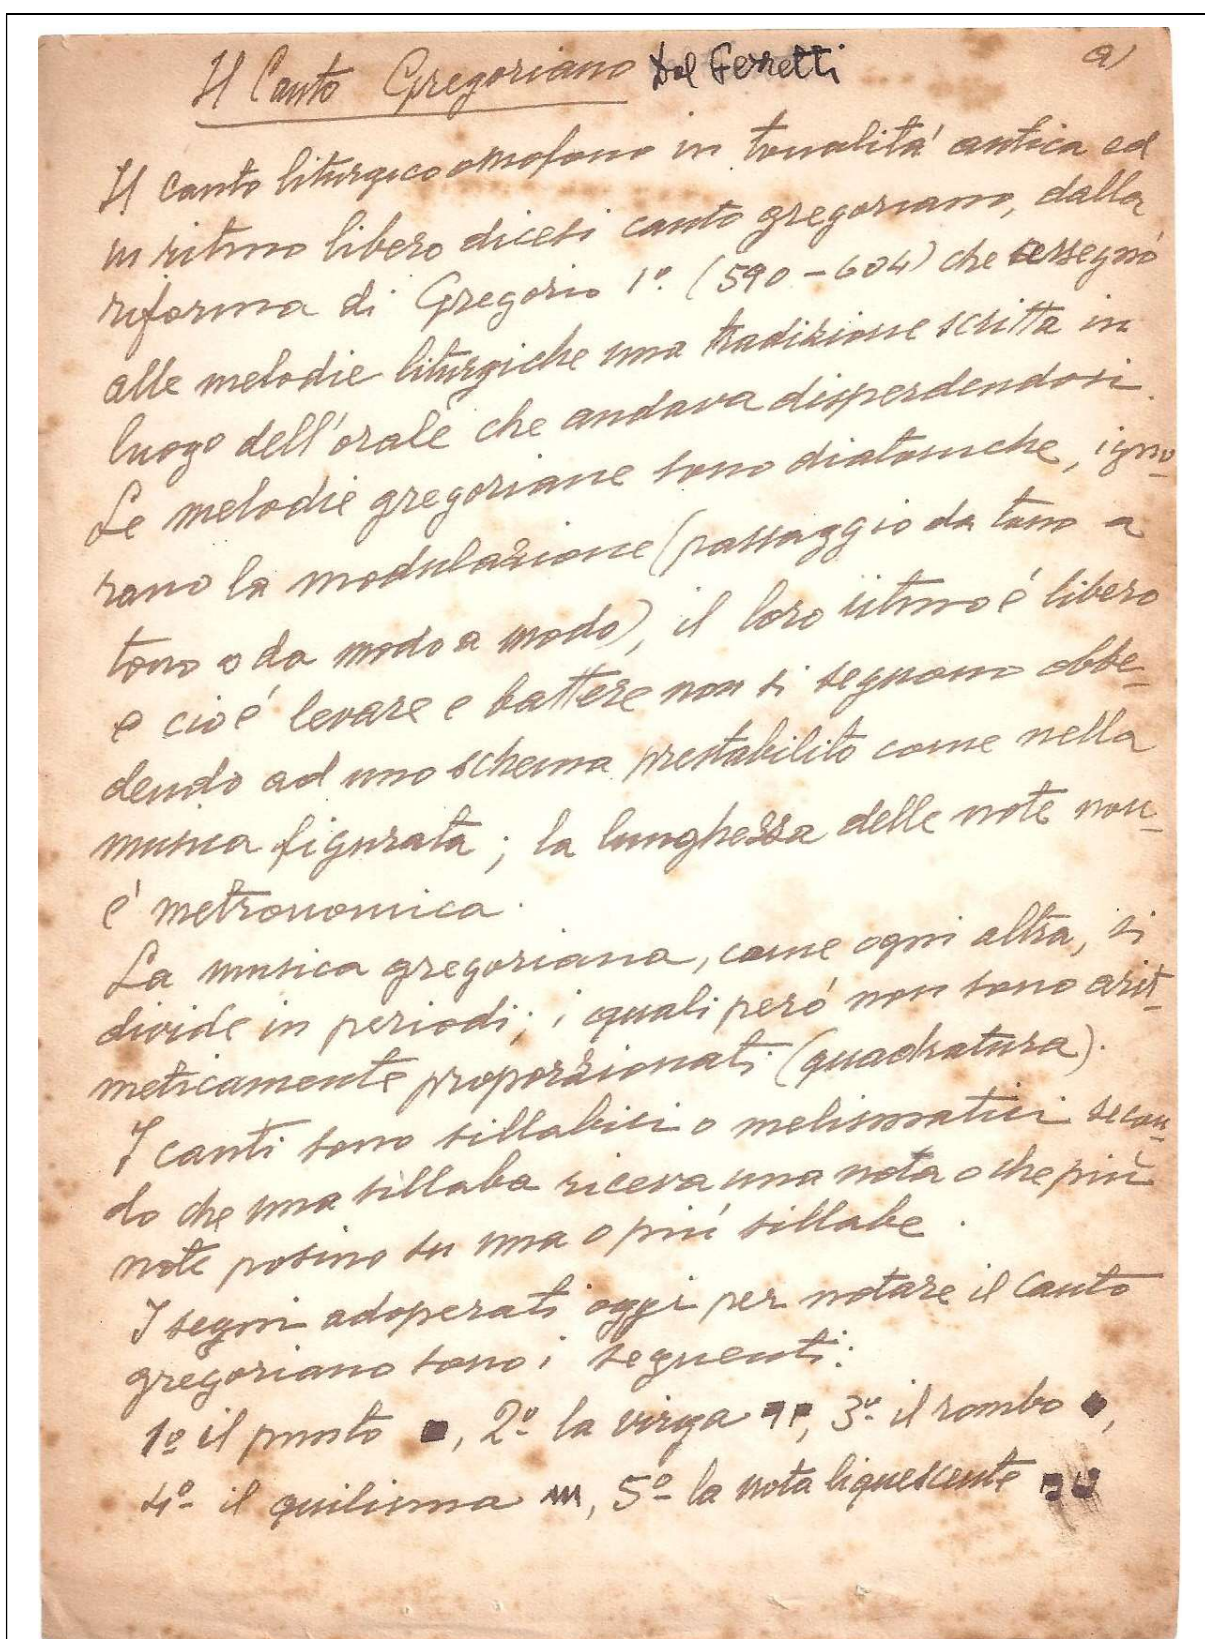 Il Canto Gregoriano Dal Ferretti a)
Il canto liturgico omofono in tonalità antica ed
in ritmo libero dicesi canto gregoriano, dalla
riforma di Gregorio 1º. (590-604) che assegnò
alle melodie liturgiche una tradizione scritta in
luogo dell'orale che andava disperdendosi.
Le melodie gregoriane sono diatoniche, igno-
rano la modulazione (passaggio da tono a
tono o da modo a modo), il loro ritmo é libero
e cioé levare e battere non si seguono obbe-
dendo ad uno schema prestabilito come nella
musica figurata; la lunghezza delle note non
é metronomica.
La musica gregoriana, come ogni altra, si
divide in periodi; i quali peró non sono arit-
meticamente proporzionati (quadratura).
I canti sono sillabici o melismatici secon-
do che una sillaba riceva una nota o che più
note posino su una o piú sillabe.
I segni adoperati oggi per notare il canto
gregoriano sono i seguenti:
1º il punto ■, 2º la virga, 3º il rombo ◆,
4º il quilisma, 5º la nota liquescente